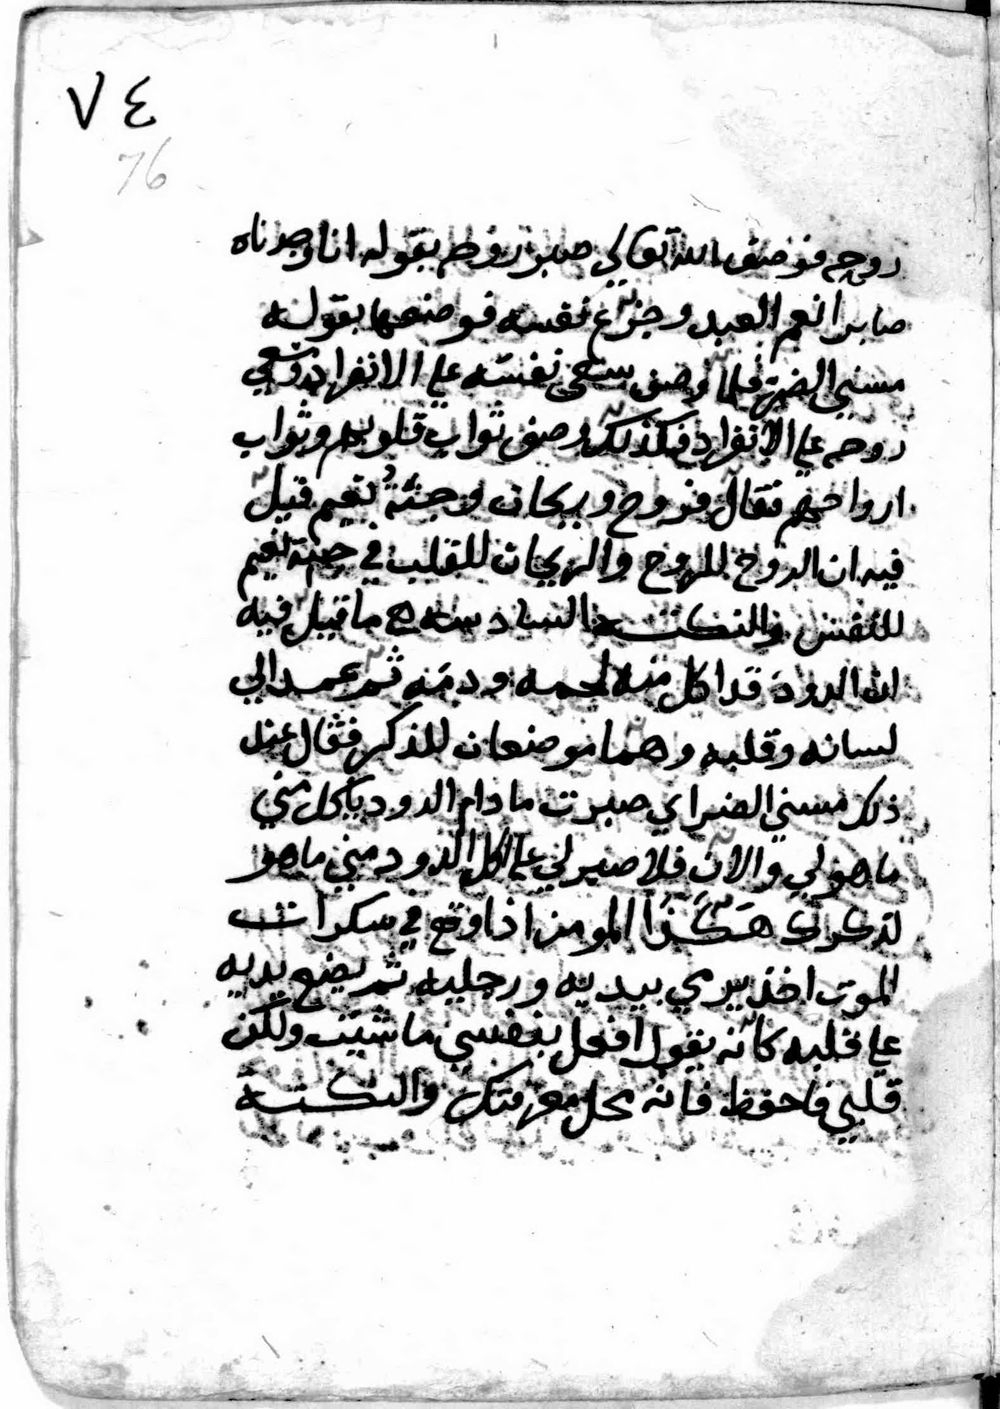 ٧٤
76
روحه فوصف الله تعالى صبر روحه بقوله انا وجدناه
صابرا نعم العبد وجزع نفسه فوصفها بقوله
مسني الضر فلما وصف سعى نفسه على الانفراد وسعي
روحه على الانفراد فكذلك وصف ثواب قلوبهم وثواب
ارواحهم فقال فروح وريحان وجنة نعيم قيل
فيه ان الروح للروح والريحان للقلب في جنة نعيم
للنفس والنكتة السادسة ما قيل فيه
ان الدود قد اكل منه لحمه ودمه ثم عمد الي
لسانه وقلبه وهما موضعان للذكر فقال عند
ذلك مسني الضر اي صبرت ما دام الدود ياكل مني
ما هو لي والان فلا صبر لي على اكل الدود مني ما هو
لذكرك هَكَذَا المومن اذا وقع في سكرات
الموت اخذ يرمي بيديه ورجليه ثم يضع يديه
على قلبه كانه يقول افعل بنفسي ما شيت ولكن
قلبي فاحفظ فانه محل معرفتك والنكتة